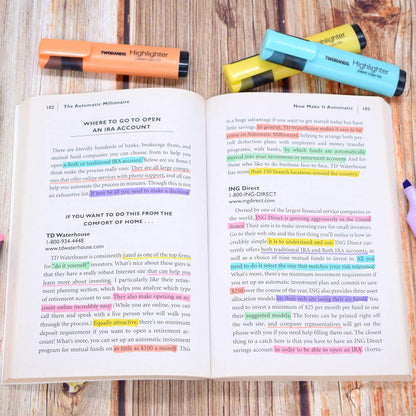 TWOHANDS
Highlighter
TWOHANDS
Highlighter
Highlighter
102 The Automatic Millionaire
WHERE TO GO TO OPEN
AN IRA ACCOUNT
There are literally hundreds of banks, brokerage firms, and
mutual fund companies you can choose from to help you
open a Roth or traditional IRA account. Below are six firms I
think make the process really easy. They are all large compa-
nies that offer online services with phone support, and all can
help you automate the process in minutes. Though this is not
an exhaustive list, it may be all you need to make a decision.
IF YOU WANT TO DO THIS FROM THE
COMFORT OF HOME . . .
TD Waterhouse
1-800-934-4448
www.tdwaterhouse.com
TD Waterhouse is consistently rated as one of the top firms
for "do it yourself" investors. What's nice about these guys is
that they have a really robust Internet site that can help you
learn more about investing. I particularly like their retire-
ment planning section, which helps you analyze which type
of retirement account to use. They also make opening an ac-
count online incredibly easy. (While you are online, you can
call them and speak with a live person who will walk you
through the process.) Equally attractive, there's no minimum
deposit requirement if you want to open an IRA account.
What's more, you can set up an automatic investment
program for mutual funds on as little as $100 a month. This
Now Make It Automatic 103
is a huge advantage if you want to get started today but have
little savings. In general, TD Waterhouse makes it easy to be
come an Automatic Millionaire, helping to arrange both pay-
roll deduction plans with employers and money transfer
programs, with banks, by which funds are automatically
moved into your investment or retirement accounts. And for
those who like to do business face-to-face, TD Waterhouse
has more than 120 branch locations around the country.
ING Direct
1-800-ING-DIRECT
www.ingdirect.com
Owned by one of the largest financial service companies in
the world, ING Direct is growing aggressively in the United
States. Their aim is to make investing easy for small investors.
Go to their web site and the first thing you'll notice is how in-
credibly simple it is to understand and use. ING Direct cur-
rently offers both traditional IRA and Roth IRA accounts, as
well as a choice of nine mutual funds to invest in. All you
need to do is select the one that matches your risk tolerance.
What's more, there's no minimum investment requirement if
you set up an automatic investment plan and commit to save
$250 over the course of the year. ING also provides three asset
allocation models on their web site using their set funds. You
need to invest a minimum of $25 per month per fund to use
their suggested models. The forms can be printed right off
the web site, and company representatives will get on the
phone with you if you need help filling them out. The closest
thing to a catch here is that you have to have an ING Direct
savings account in order to be able to open an IRA (Fortu-